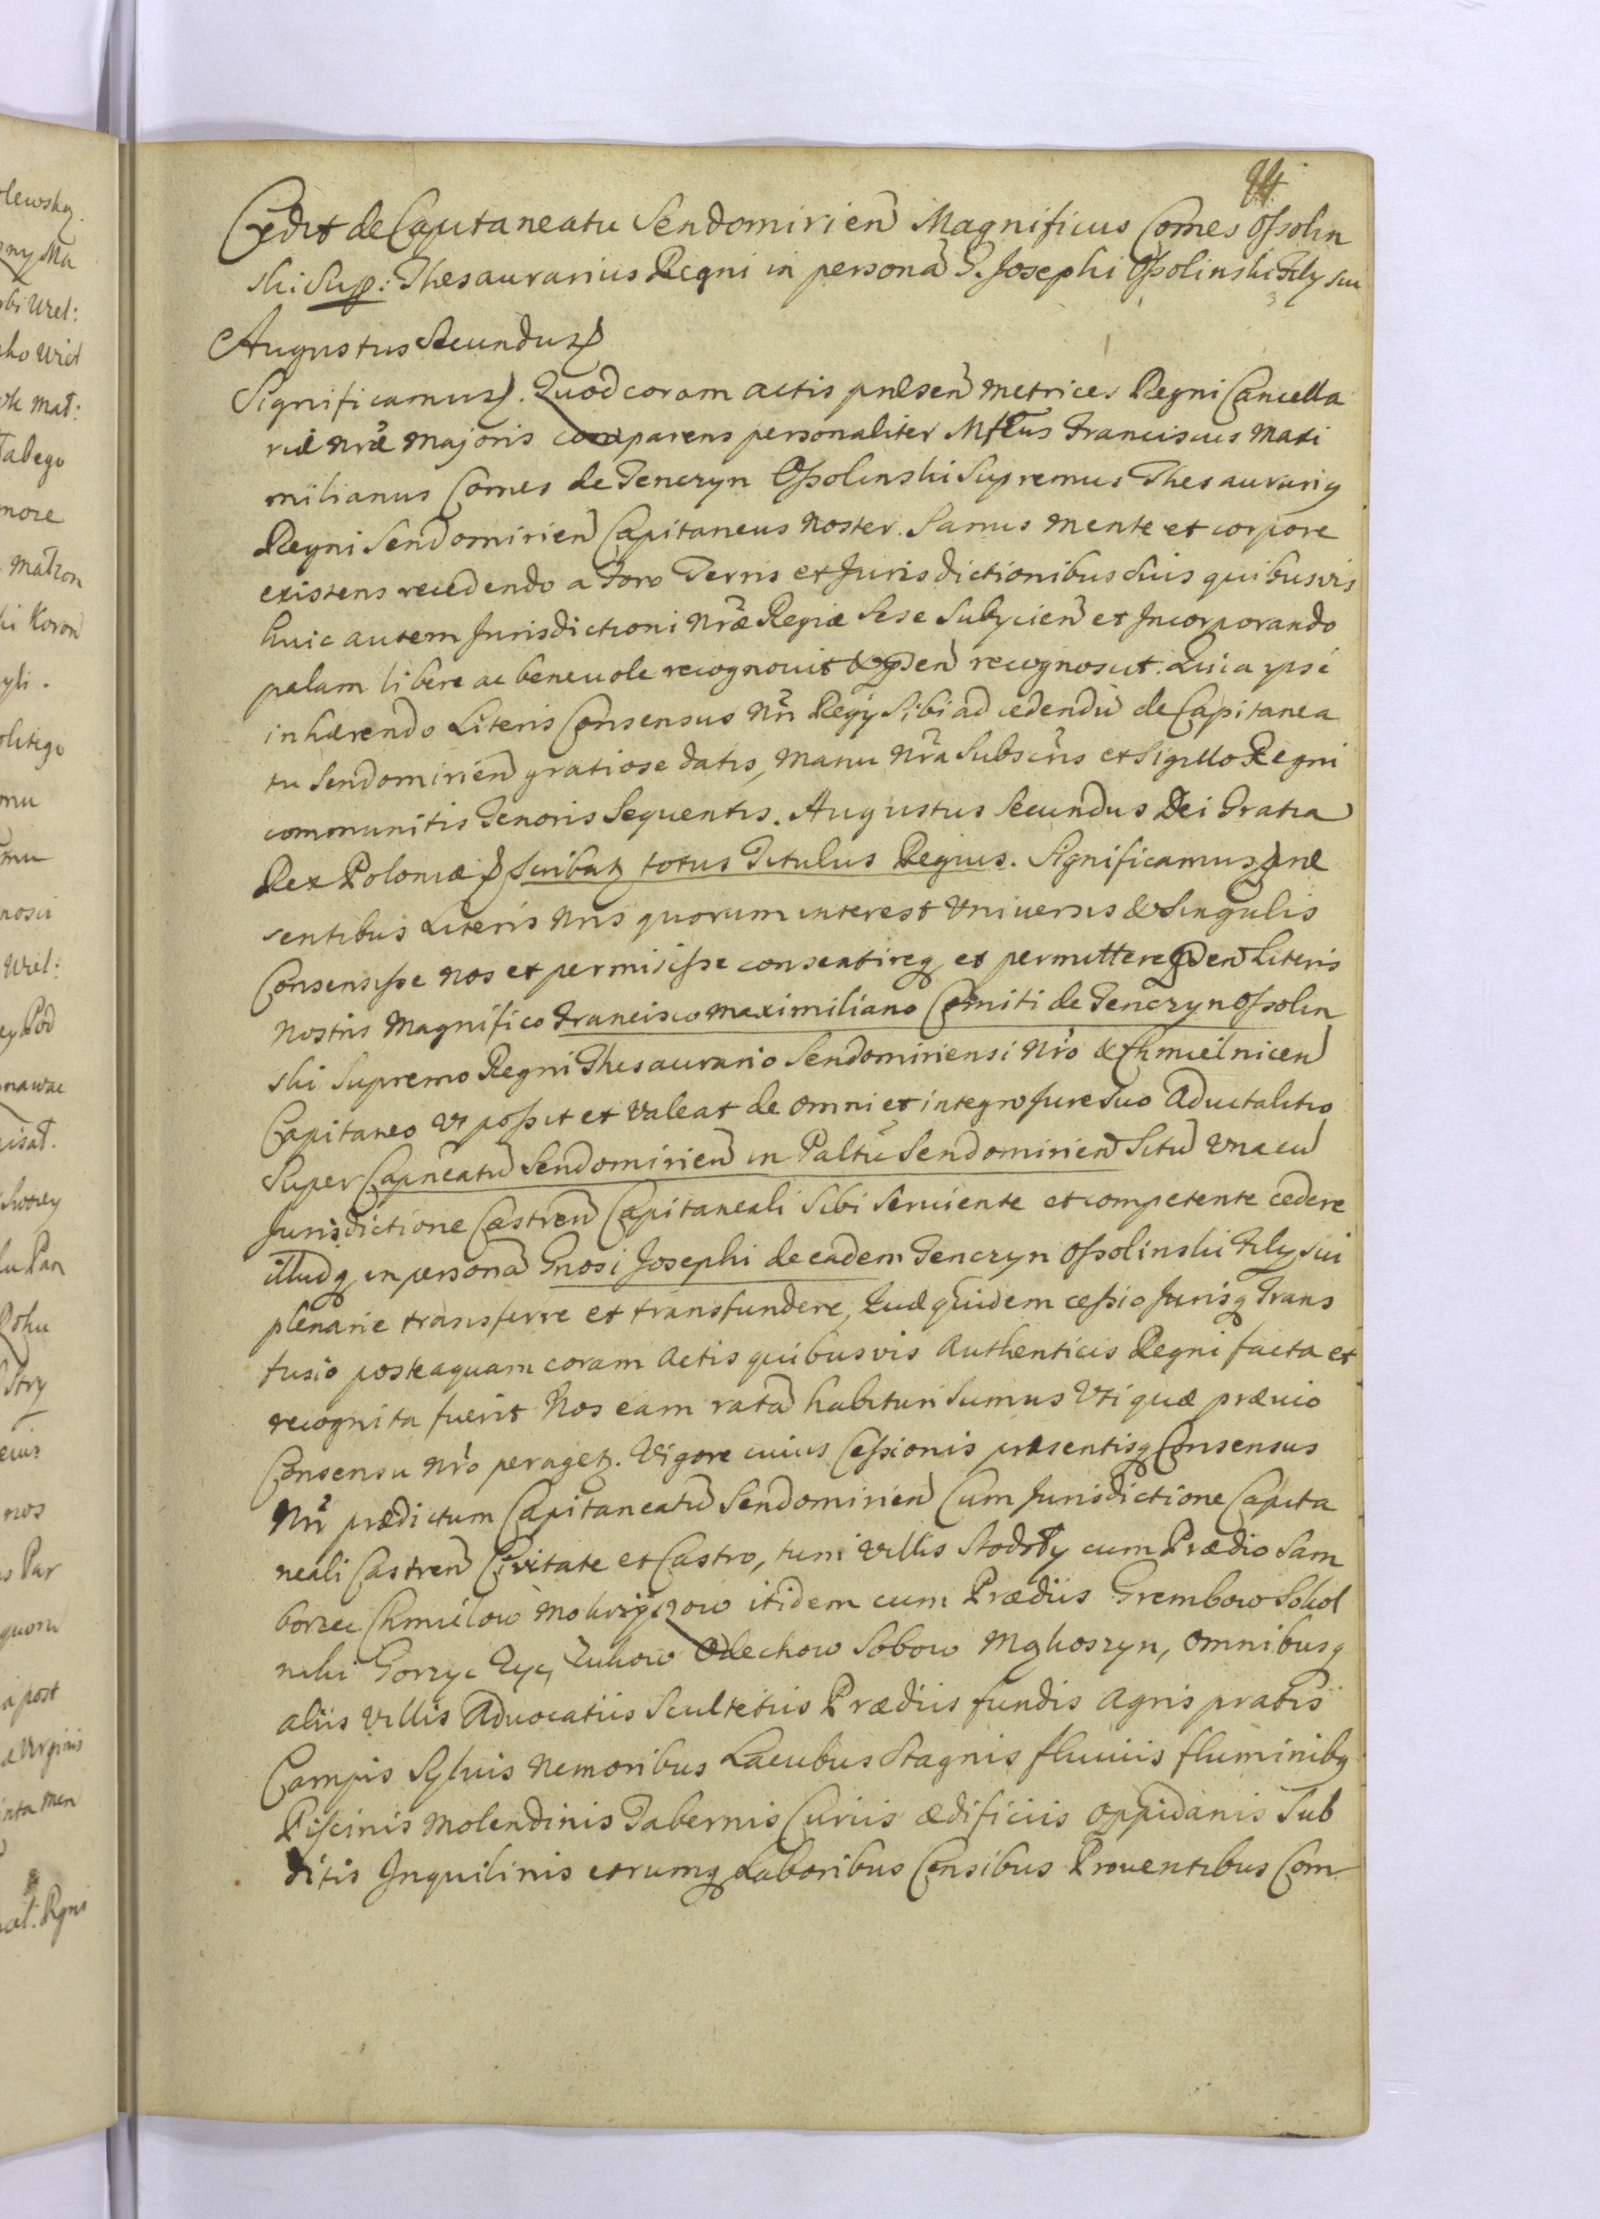 Cedit de Capitaneatu Sendomirien Magnificus Comes Ossolin
ski Sup: Thesaurarius Regni in persona G. Josephi Ossolinski Filij sui
Augustus Secundus
Significamus. Quod coram actis pnlsen metrices Regni Cancella
riæ nræ Majoris comparens personaliter Mfcus Franciscus Maxi
milianus Comes de Tenczyn Ossolinski Supremus Thesaurariq
Regni Sendomirien Capitaneus Noster. Sanus mente et corpore
existens recedendo a foro Terris et Jurisdictionibus Suis quibusvis
huic autem Jurisdictioni nræ Regiæ Sese Subycien et Incorporando
palam libere ac beneuole recognouit recognoscit. Quia ipse
inhærendo Literis Consensus Nri Regij Sibi ad cedendu de Capitanea
tu Sendomirien gratiose datis, Manu Nra Subscris et Sigillo Regni
communitis Tenoris Sequentis. Augustus Secundus Dei Gratia
Rex Poloniæ Scribatz totus Titulus Regius. Significamus præ
sentibus Literis Nris quorum interest Vniuersis & Singulis
Consensisse Nos et permisisse consentireq et permittere Literis
Nostris Magnifico Francisco Maximiliano Comiti de Tenczyn Ossolin
ski Supremo Regni Thesaurario Sendomiriensi Nro & Chmielnicen
Capitaneo Vt possit et Valeat de omni et integro Jure Suo Aduitalitio
Super Capneatu Sendomirien in Paltu Sendomirien Situ Vna cu
Jurisdictione Castren Capitaneali Sibi Seruiente et competente cedere
illudq in persona Gnosi Josephi de eadem Tenczyn Ossolinski Filij sui
plenarie transferre et transfundere, Quæ quidem cessio Jurisq Trans
fusio posteaquam coram Actis quibusvis Authenticis Regni facta et
recognita fuerit Nos eam rata habituri Sumus Vti quæ præuio
Consensu Nro peragetz. Vigore cuius Cessionis præsentisq Consensus
Nri prædictum Capitaneatu Sendomirien Cum Jurisdictione Capita
neali Castren Civitate et Castro, tum Villis cum Prædio Sam
borzec Chmielow Mokrzyszow itidem cum Prædiis Grembow Sokol
niki Gorzyc Zyc, Zukow Orlechow Sobow omnibusq
aliis Villis Aduocatiis Scultetiis Prædiis fundis Agris pratis
Campis Syluis Nemoribus Lacubus Stagnis fluuiis fluminibq
Piscinis Molendinis Tabernis Curiis ædificiis oppidanis Sub
ditis Inquilinis eorumq Laboribus Censibus Prouentibus Com